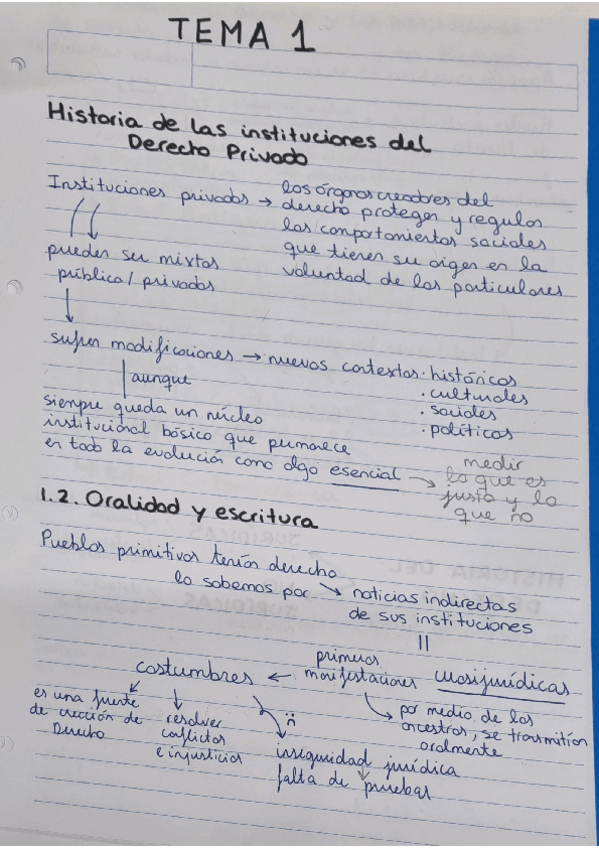 TEMA 1
Historia de las instituciones del
Derecho Privado
Instituciones privadas → los órganos creadores del
derecho protegen y regulan
los comportamientos sociales
que tienen su origen en la
voluntad de los particulares
pueden ser mixtas
pública/privadas
sufren modificaciones → nuevos contextos · históricos
· culturales
· sociales
· políticos
aunque
siempre queda un núcleo
institucional básico que permanece
en toda la evolución como algo esencial →
medir
lo que es
justo y lo
que no
1.2. Oralidad y escritura
Pueblos primitivos tenían derecho
lo sabemos por → noticias indirectas
de sus instituciones
costumbres ← primeras
manifestaciones cuasijurídicas
es una fuente
de creación de
Derecho
resolver
conflictos
e injusticias
:(
inseguridad jurídica
falta de pruebas
por medio de los
ancestros, se transmitían
oralmente